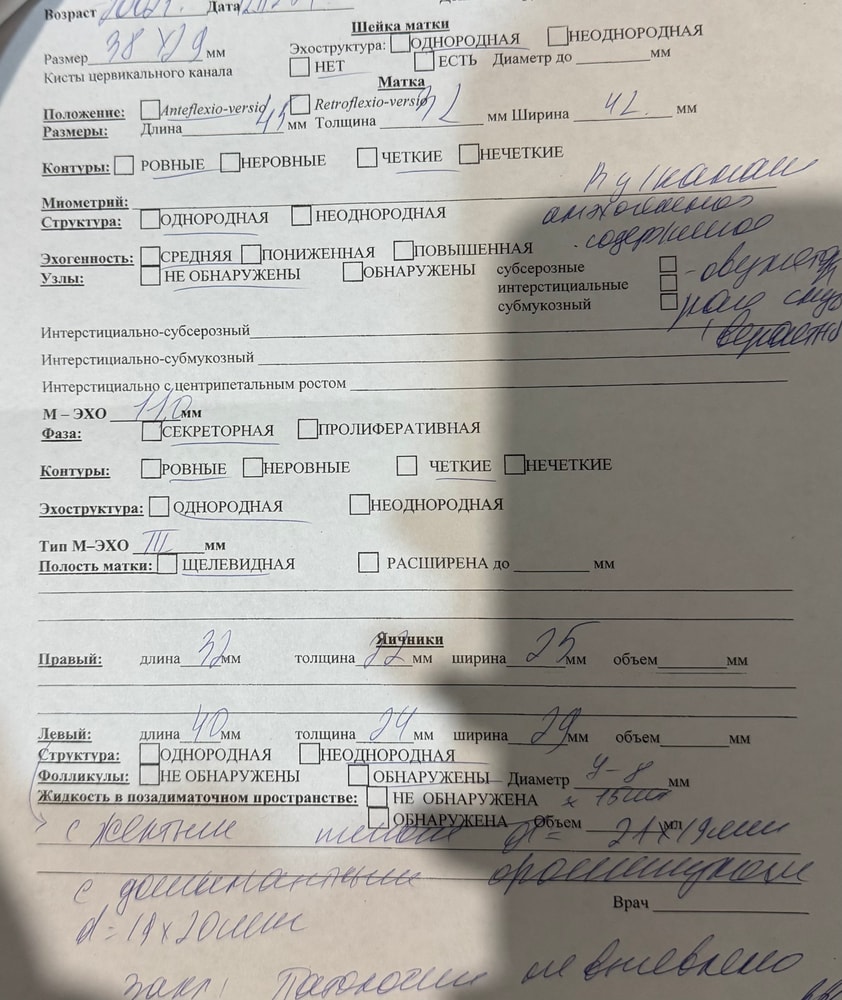 Возраст Дата
Шейка матки
Размер 38 х 29 мм Эхоструктура: ОДНОРОДНАЯ НЕОДНОРОДНАЯ
Кисты цервикального канала НЕТ ЕСТЬ Диаметр до мм
Матка
Положение: Anteflexio-versio Retroflexio-versio
Размеры: Длина 45 мм Толщина 32 мм Ширина 42 мм
Контуры: РОВНЫЕ НЕРОВНЫЕ ЧЕТКИЕ НЕЧЕТКИЕ
Миометрий:
Структура: ОДНОРОДНАЯ НЕОДНОРОДНАЯ
содержимое
Эхогенность: СРЕДНЯЯ ПОНИЖЕННАЯ ПОВЫШЕННАЯ
Узлы: НЕ ОБНАРУЖЕНЫ ОБНАРУЖЕНЫ субсерозные
интерстициальные
субмукозный
Интерстициально-субсерозный
Интерстициально-субмукозный
Интерстициально с центрипетальным ростом
М – ЭХО 11,0 мм
Фаза: СЕКРЕТОРНАЯ ПРОЛИФЕРАТИВНАЯ
Контуры: РОВНЫЕ НЕРОВНЫЕ ЧЕТКИЕ НЕЧЕТКИЕ
Эхоструктура: ОДНОРОДНАЯ НЕОДНОРОДНАЯ
Тип М–ЭХО III мм
Полость матки: ЩЕЛЕВИДНАЯ РАСШИРЕНА до мм
Яичники
Правый: длина 32 мм толщина 22 мм ширина 25 мм объем мм
Левый: длина 40 мм толщина 24 мм ширина 29 мм объем мм
Структура: ОДНОРОДНАЯ НЕОДНОРОДНАЯ
Фолликулы: НЕ ОБНАРУЖЕНЫ ОБНАРУЖЕНЫ Диаметр 4-8 мм
Жидкость в позадиматочном пространстве: НЕ ОБНАРУЖЕНА х 15мм
ОБНАРУЖЕНА Объем мл
с желтым телом d= 21х19мм
с доминантным фолликулом
Врач
d=19х20мм
Закл: Патологии не выявлено